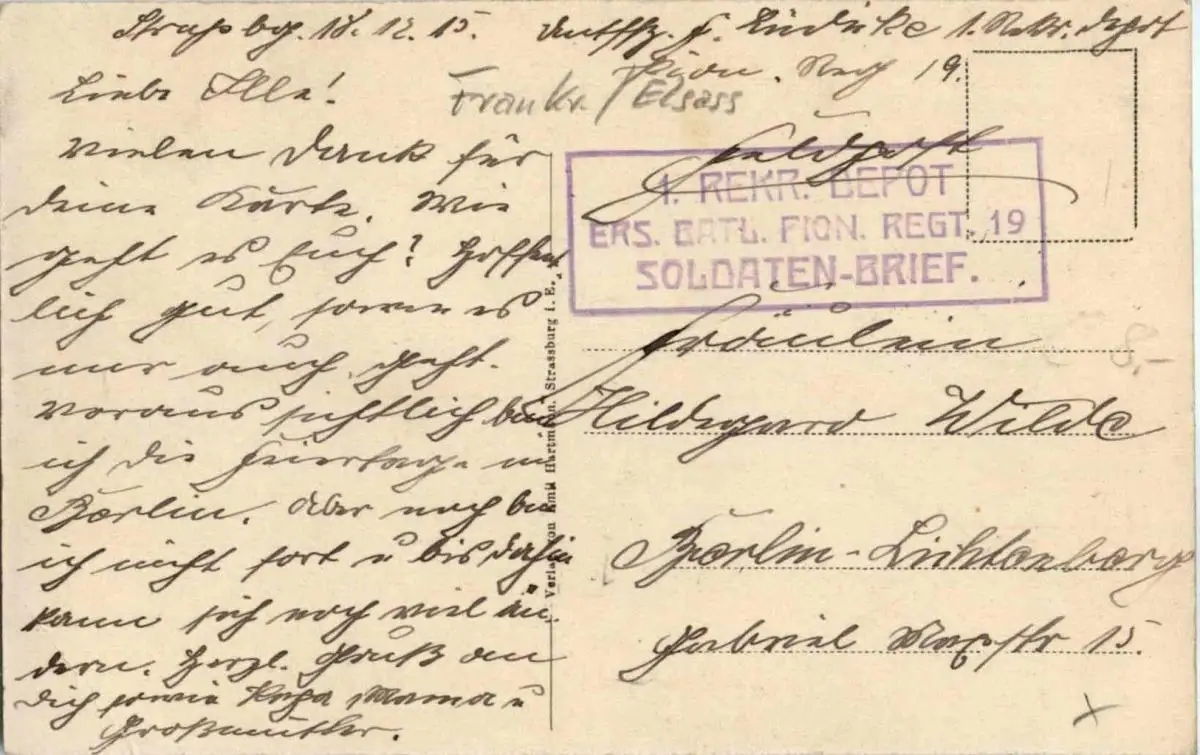 Straßbg. 18.12.15. Untffz. F. Lüdicke 1. Rekr. Depot
Pion. Reg 19.
Liebe Illa!
Frankr. / Elsass
Vielen Dank für
deine Karte. Wie
geht es Euch? Hoffent
lich gut, sowie es
mir auch geht.
Voraussichtlich bin
ich die Feiertage in
Berlin. Aber noch bin
ich nicht fort u bis dahin
kann sich noch viel än-
dern. Herzl. Gruß an
Dich sowie Papa, Mama u
Großmutter.
Verlag von Emil Hartmann, Strassburg i. E.
Feldpost
1. REKR. DEPOT
ERS. BATL. PION. REGT. 19
SOLDATEN-BRIEF.
Fräulein
Hildegard Wilde
Berlin-Lichtenberg
Gabriel Maxstr 15.
8.-